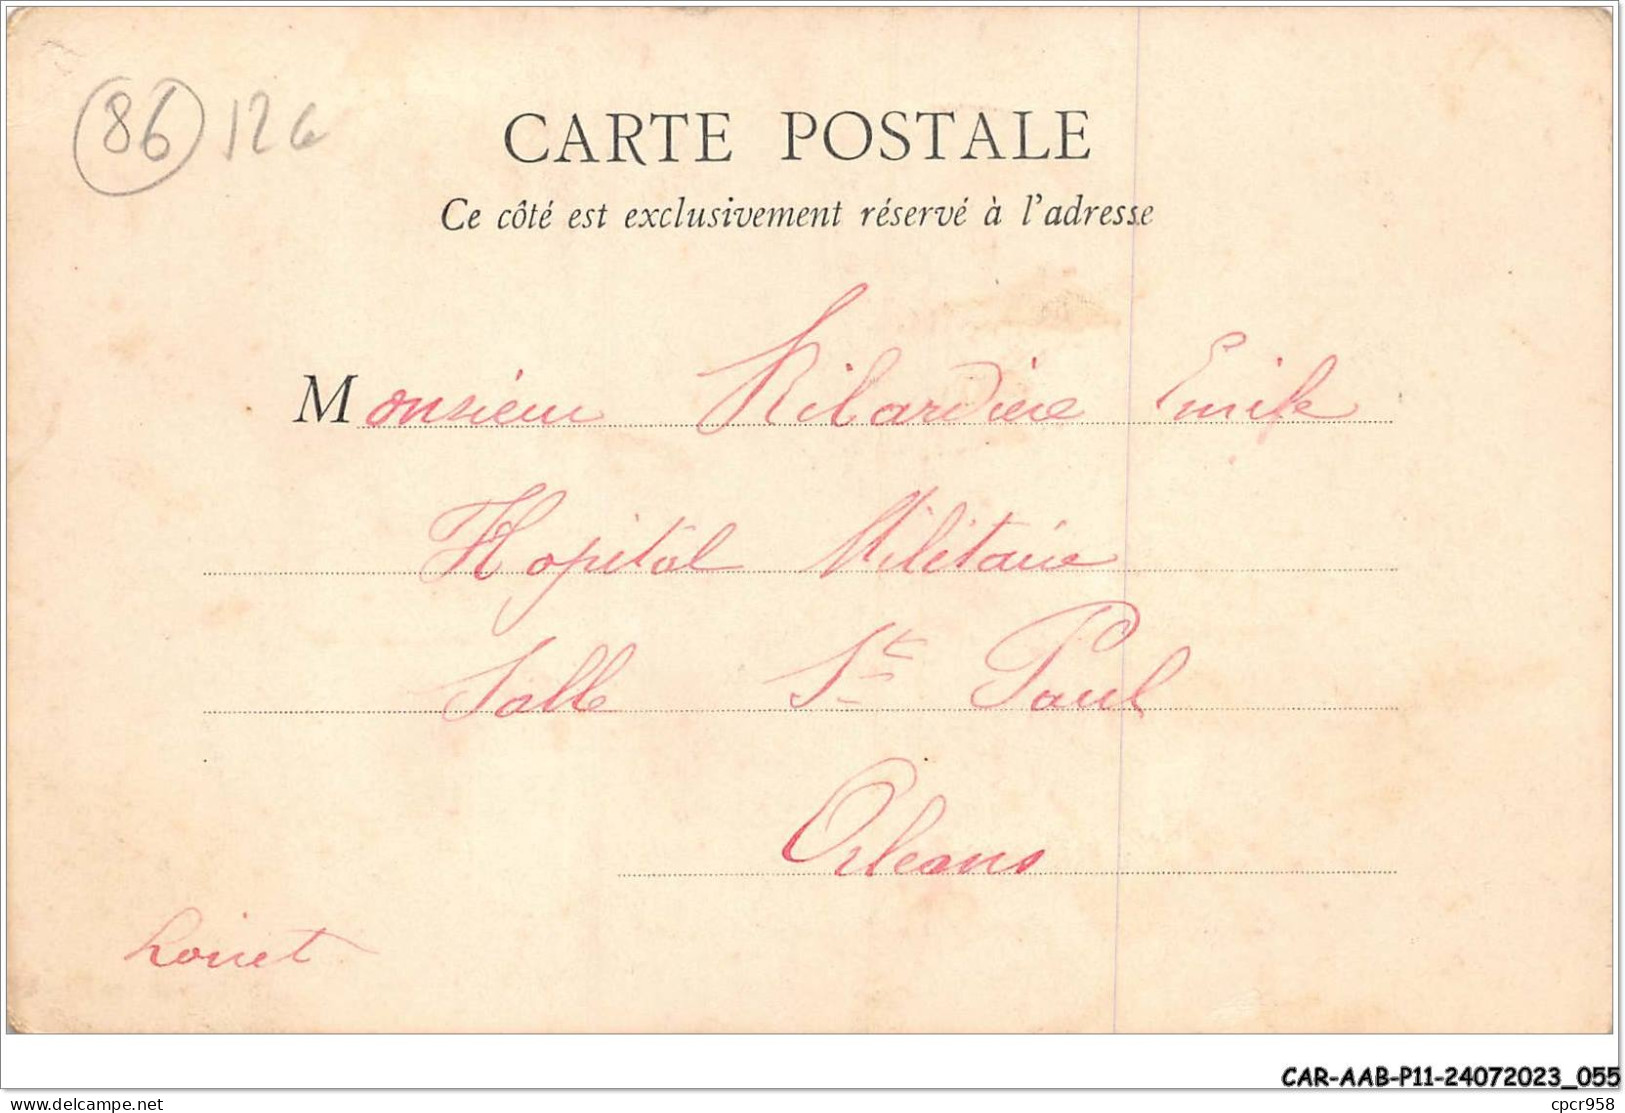 86 126
CARTE POSTALE
Ce côté est exclusivement réservé à l'adresse
Monsieur Ribardière Emile
Hopital Militaire
Salle St Paul
Orleans
Loiret
CAR-AAB-P11-24072023_055
www.delcampe.net
cpcr958